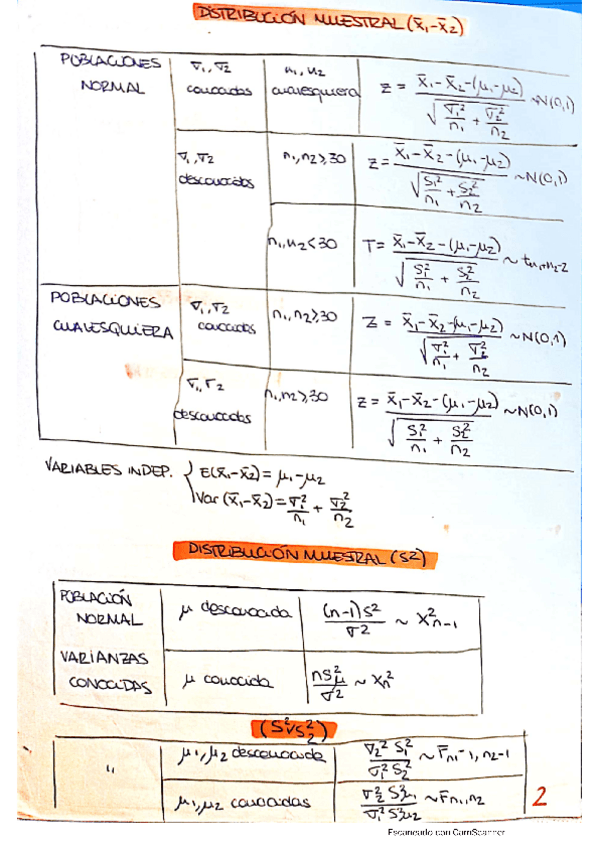 DISTRIBUCIÓN MUESTRAL (x̄₁-x̄₂)
POBLACIONES NORMAL
σ₁,σ₂ conocidas
n₁,n₂ cualesquiera
Z = x̄₁-x̄₂-(μ₁-μ₂) / √(σ₁²/n₁ + σ₂²/n₂) ~N(0,1)
σ₁,σ₂ desconocidas
n₁,n₂≥30
Z = x̄₁-x̄₂-(μ₁-μ₂) / √(S₁²/n₁ + S₂²/n₂) ~N(0,1)
n₁,n₂<30
T = x̄₁-x̄₂-(μ₁-μ₂) / √(S₁²/n₁ + S₂²/n₂) ~ tn₁+n₂-2
POBLACIONES CUALESQUIERA
σ₁,σ₂ conocidas
n₁,n₂≥30
Z = x̄₁-x̄₂-(μ₁-μ₂) / √(σ₁²/n₁ + σ₂²/n₂) ~N(0,1)
σ₁,σ₂ desconocidas
n₁,n₂≥30
Z = x̄₁-x̄₂-(μ₁-μ₂) / √(S₁²/n₁ + S₂²/n₂) ~N(0,1)
VARIABLES INDEP. { E(x̄₁-x̄₂) = μ₁-μ₂
Var(x̄₁-x̄₂) = σ₁²/n₁ + σ₂²/n₂
DISTRIBUCIÓN MUESTRAL (S²)
POBLACIÓN NORMAL
μ desconocida
(n-1)S²/σ² ~ X²n-1
VARIANZAS CONOCIDAS
μ conocida
nS²μ/σ² ~ Xn²
(S₁²/S₂²)
"
μ₁,μ₂ desconocida
σ₂² S₁² / σ₁² S₂² ~ Fn₁-1, n₂-1
μ₁,μ₂ conocidas
σ₂² S²μ₁ / σ₁² S²μ₂ ~ Fn₁,n₂
2
Escaneado con CamScanner